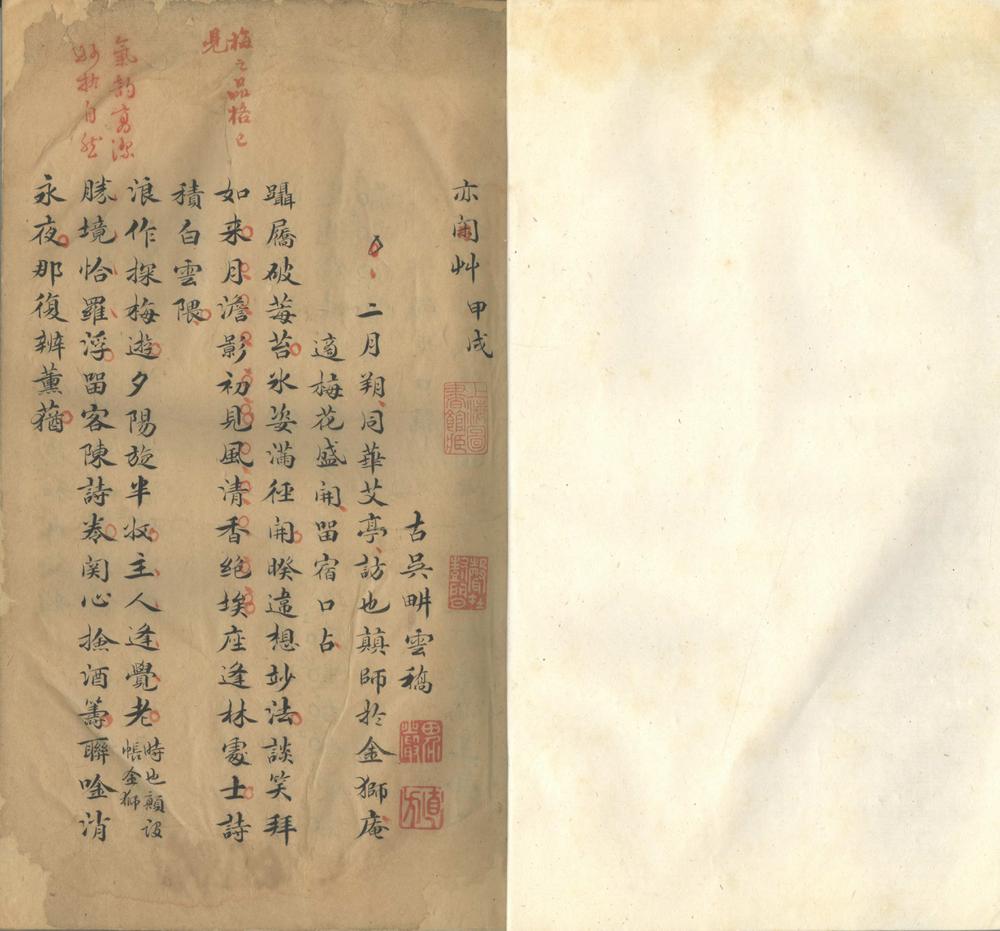 亦閑艸 甲戌
上海圖書館藏
古吳畊雲稿
二月朔同華艾亭訪也顛師於金獅庵
適梅花盛開留宿口占
躡屩破莓苔氷姿滿徑開暌違想妙法談笑拜
如来月澹影初見風清香絶埃座逢林處士詩
積白雲隈
浪作探梅遊夕陽旋半收主人逢覺老時也顛設帳金獅
勝境恰羅浮留客陳詩卷関心撿酒籌聯唫消
永夜那復辨薰蕕
梅之品格已
見
氣韵高潔
妙於自然